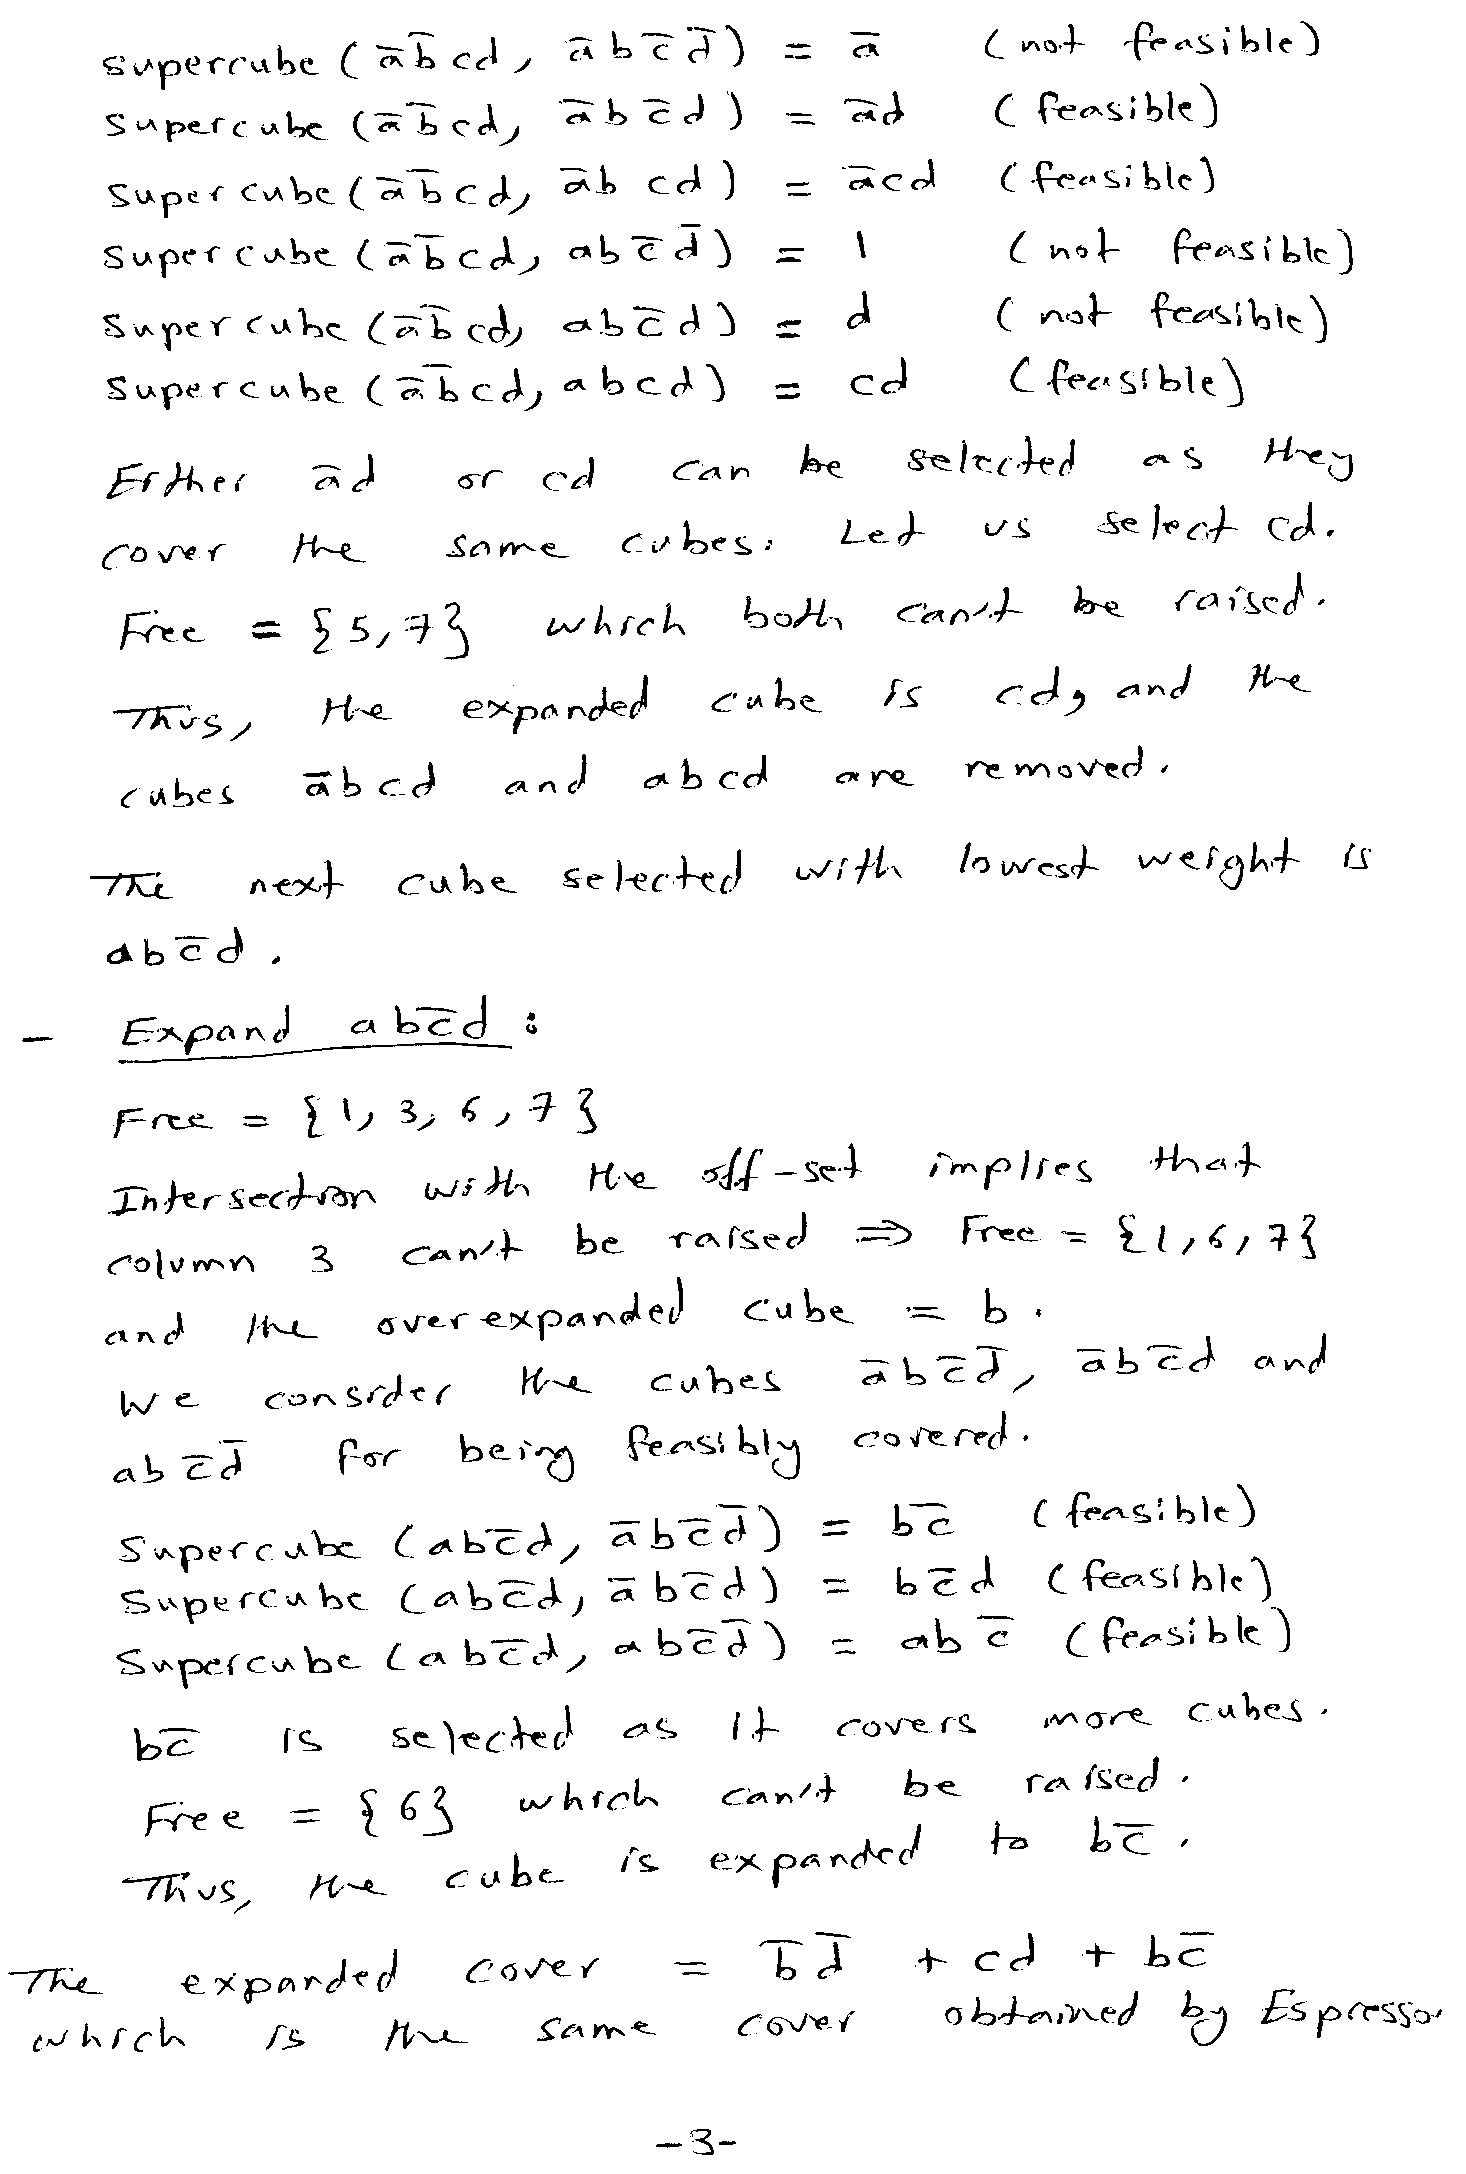 supercube (a̅b̅cd, a̅bc̅d̅) = a̅ (not feasible)
supercube (a̅b̅cd, a̅bc̅d) = a̅d (feasible)
supercube (a̅b̅cd, a̅bcd) = a̅cd (feasible)
supercube (a̅b̅cd, abc̅d̅) = 1 (not feasible)
supercube (a̅b̅cd, abc̅d) = d (not feasible)
supercube (a̅b̅cd, abcd) = cd (feasible)
Either a̅d or cd can be selected as they
cover the same cubes. Let us select cd.
Free = {5,7} which both can't be raised.
Thus, the expanded cube is cd, and the
cubes a̅bcd and abcd are removed.
The next cube selected with lowest weight is
abc̅d.
- Expand abc̅d :
Free = {1, 3, 6, 7}
Intersection with the off-set implies that
column 3 can't be raised ⇒ Free = {1,6,7}
and the overexpanded cube = b.
We consider the cubes a̅bc̅d̅, a̅bc̅d and
abc̅d̅ for being feasibly covered.
Supercube (abc̅d, a̅bc̅d̅) = bc̅ (feasible)
Supercube (abc̅d, a̅bc̅d) = bc̅d (feasible)
Supercube (abc̅d, abc̅d̅) = abc̅ (feasible)
bc̅ is selected as it covers more cubes.
Free = {6} which can't be raised.
Thus, the cube is expanded to bc̅.
The expanded cover = b̅d̅ + cd + bc̅
which is the same cover obtained by Espresso.
-3-